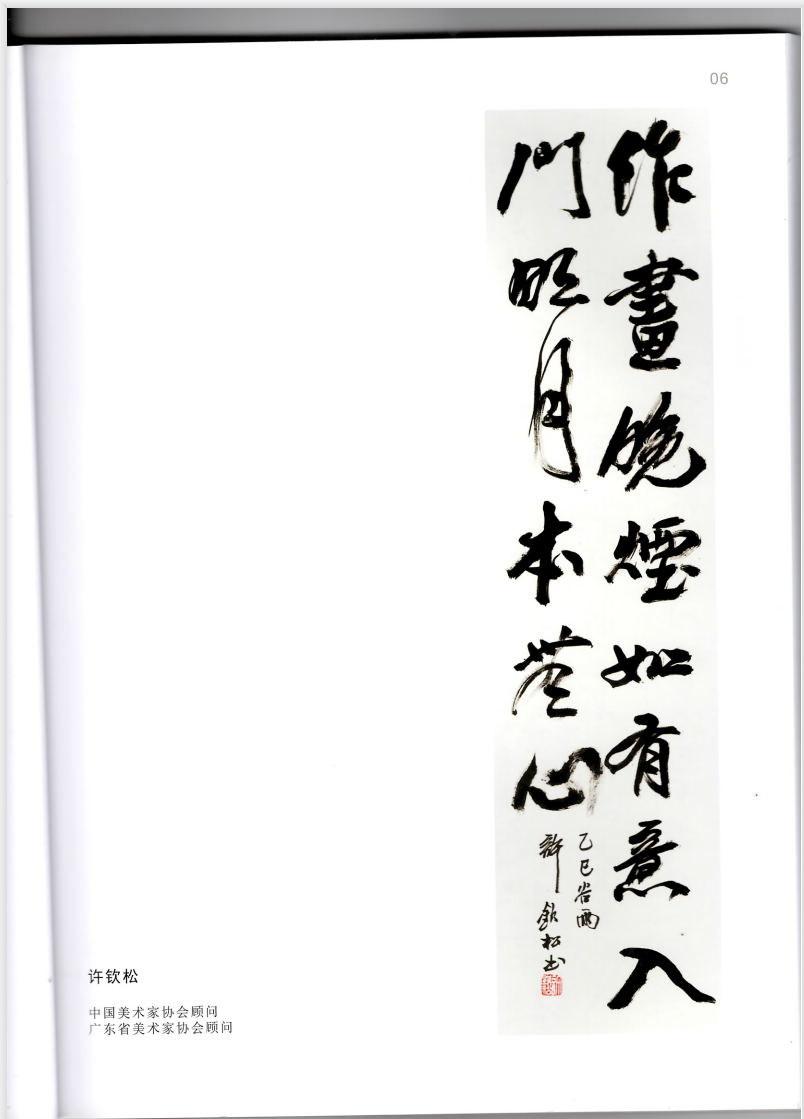 06
作畫晚煙如有意入
門明月本無心
乙巳谷雨
許欽松書
许钦松
中国美术家协会顾问
广东省美术家协会顾问